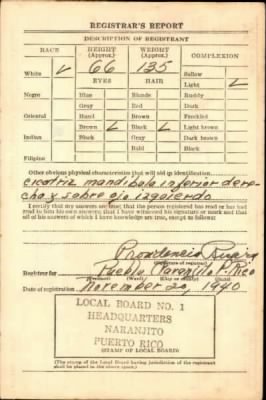 REGISTRAR'S REPORT
DESCRIPTION OF REGISTRANT
RACE HEIGHT (Approx.) WEIGHT (Approx.) COMPLEXION
White ✓ 66 135 Sallow
Light ✓
EYES HAIR
Negro Blue Blonde Ruddy
Gray Red Dark
Oriental Hazel Brown Freckled
Brown ✓ Black ✓ Light brown
Indian Black Gray Dark brown
Bald Black
Filipino
Other obvious physical characteristics that will aid in identification
cicatriz mandibola inferior dere-
cha y sobre ojo izquierdo
I certify that my answers are true; that the person registered has read or has had
read to him his own answers; that I have witnessed his signature or mark and that
all of his answers of which I have knowledge are true, except as follows:
Providencia
Registrar for Pueblo Naranjito P. Rico
Date of registration November 20, 1940
LOCAL BOARD NO. 1
HEADQUARTERS
NARANJITO
PUERTO RICO
(STAMP OF LOCAL BOARD)
(The stamp of the Local Board having jurisdiction of the registrant
shall be placed in the above space.)